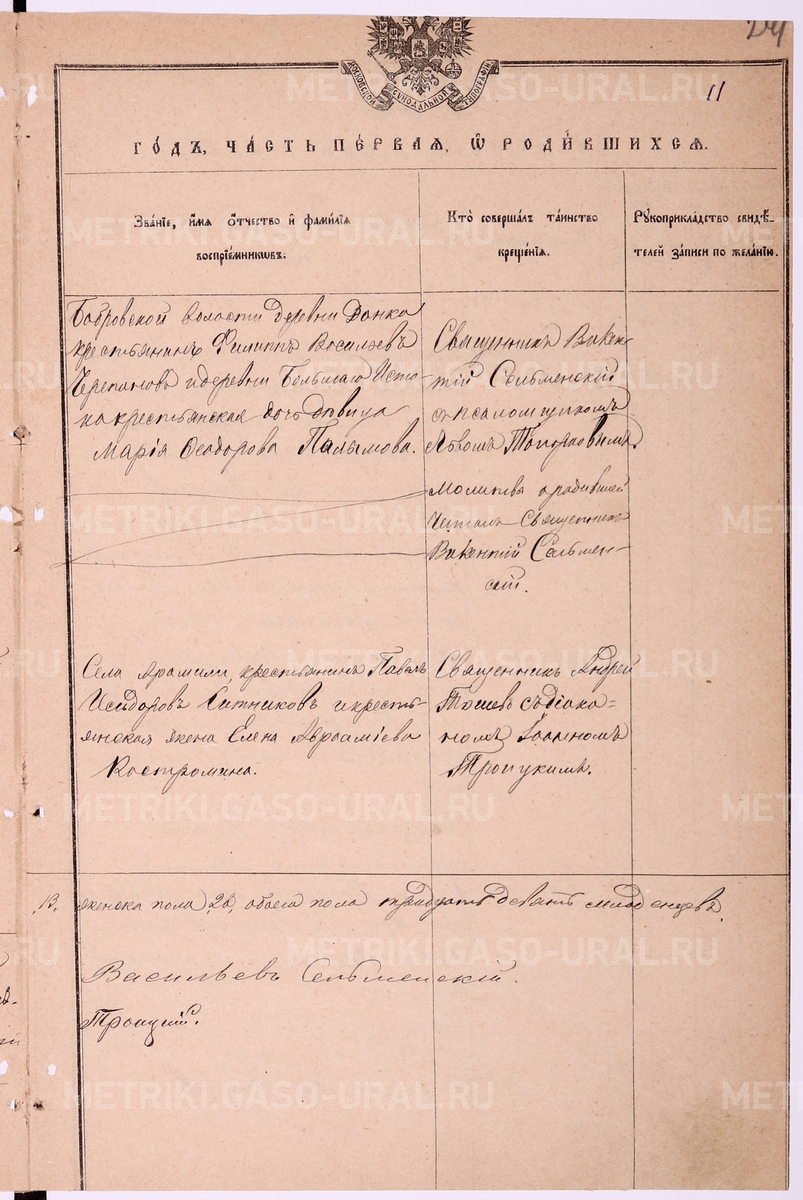 24
11
МОСКОВСКОЙ СѴНОДАЛЬНОЙ ТИПОГРАФІИ
ГО́ДЪ, ЧА́СТЬ ПЕ́РВАЯ, Ѡ РОДИ́ВШИХСЯ.
Зва́ніе, и́мя ѻ́тчество и҆ фами́лія
воспріе́мникѡвъ.
Кто̀ соверша́лъ та́инство
креще́нія.
Рꙋкоприкла́дство свидѣ́-
телей за́писи по жела́нію.
Бобровской волости деревни
крестьянинъ Филиппъ Васильевъ
Черепановъ и деревни Большаго Исто-
ка крестьянская дочь дѣвица
Марія Ѳеодорова Палымова.
Священникъ Викен-
тій Сельменскій
съ псаломщикомъ
Молитву родившей
читалъ Священникъ
Викентій Сельмен-
скій.
Села Арамили, крестьянинъ Павелъ
Исидоровъ Ситниковъ и кресть-
янская жена Елена Авраамiева
Костромина.
Священникъ Андрей
съ діако-
номъ Іоанномъ
Троицкимъ.
13. женска пола 26, обоего пола тридцать девять младенцевъ.
Васильевъ Сельменскій.
Троицкій.
METRIKI.GASO-URAL.RU